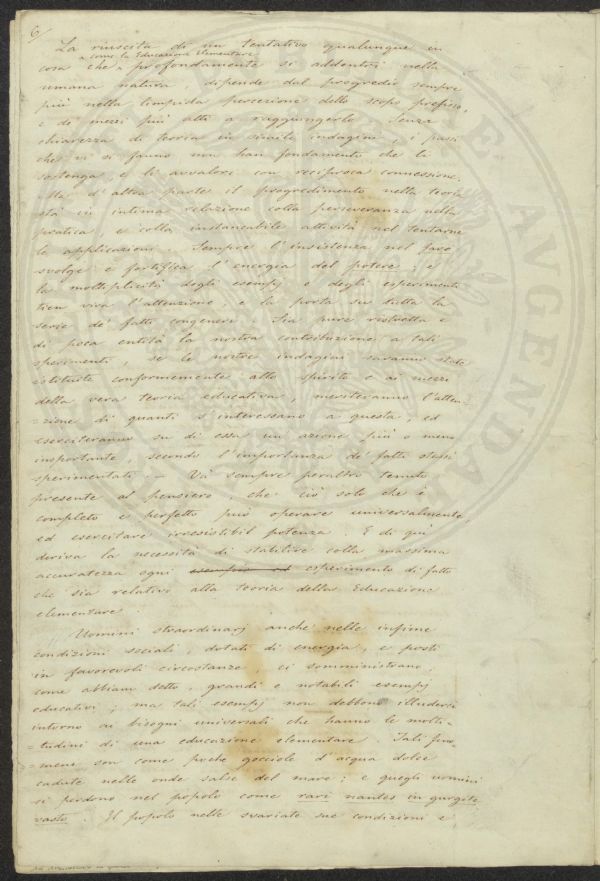 6/
La riuscita di un tentativo qualunque in
, come la Educazione Elementare
cosa che, profondamente si addentri nella
umana natura, dipende dal progredir sempre
più nella limpida percezione dello scopo prefisso,
e de' mezzi più atti a raggiungerlo. Senza
chiarezza di teoria in simile indagini, i passi
che vi si fanno non han fondamento che li
sostenga, e li avvalori con reciproca connessione.
Ma d'altra parte il progredimento nella teoria
stà in intima relazione colla perseveranza nella
pratica, e colla instancabile attività nel tentarne
le applicazioni. Sempre l'insistenza nel fare
svolge e fortifica l'energia del potere; e
la moltiplicità degli esempj e degli esperimenti
tien viva l'attenzione, e la porta su tutta la
serie de' fatti congeneri. Sia pure ristretta e
di poca entità la nostra contribuzione a tali
sperimenti, se le nostre indagini saranno state
istituite conformemente allo spirito e ai mezzi
della vera teoria educativa, meriteranno l'atten=
=zione di quanti s'interessano a questa, ed
eserciteranno su di essa un azione più o meno
importante, secondo l'importanza de' fatti stessi
sperimentali. — Và sempre peraltro tenuto
presente al pensiero, che ciò solo che è
completo e perfetto può operare universalmente,
ed esercitare irresistibil potenza. E di quì
deriva la necessità di stabilire colla massima
accuratezza ogni esempio ed esperimento di fatto
che sia relativo alla teoria della Educazione
elementare.
Uomini straordinarj anche nelle infime
condizioni sociali, dotati di energia, e posti
in favorevoli circostanze, ci somministrano,
come abbiam detto, grandi e notabili esempj
educativi; ma tali esempj non debbono illuderci
intorno ai bisogni universali che hanno le molti=
=tudini di una educazione elementare. Tali feno=
=meni son come poche gocciole d'acqua dolce
cadute nelle onde salse del mare; e quegli uomini
si perdono nel popolo come rari nantes in gurgite
vasto. Il popolo nelle svariate sue condizioni e